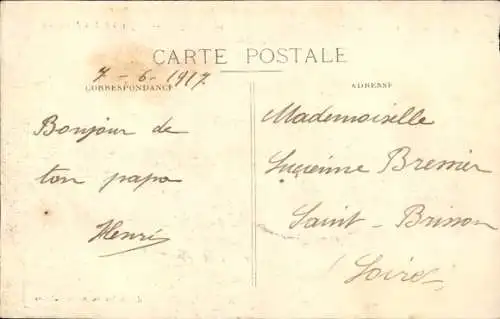 CARTE POSTALE
7-6-1917
CORRESPONDANCE
ADRESSE
Bonjour de
ton papa
Henri
Mademoiselle
Lucienne Bremier
Saint-Brisson
Loiret